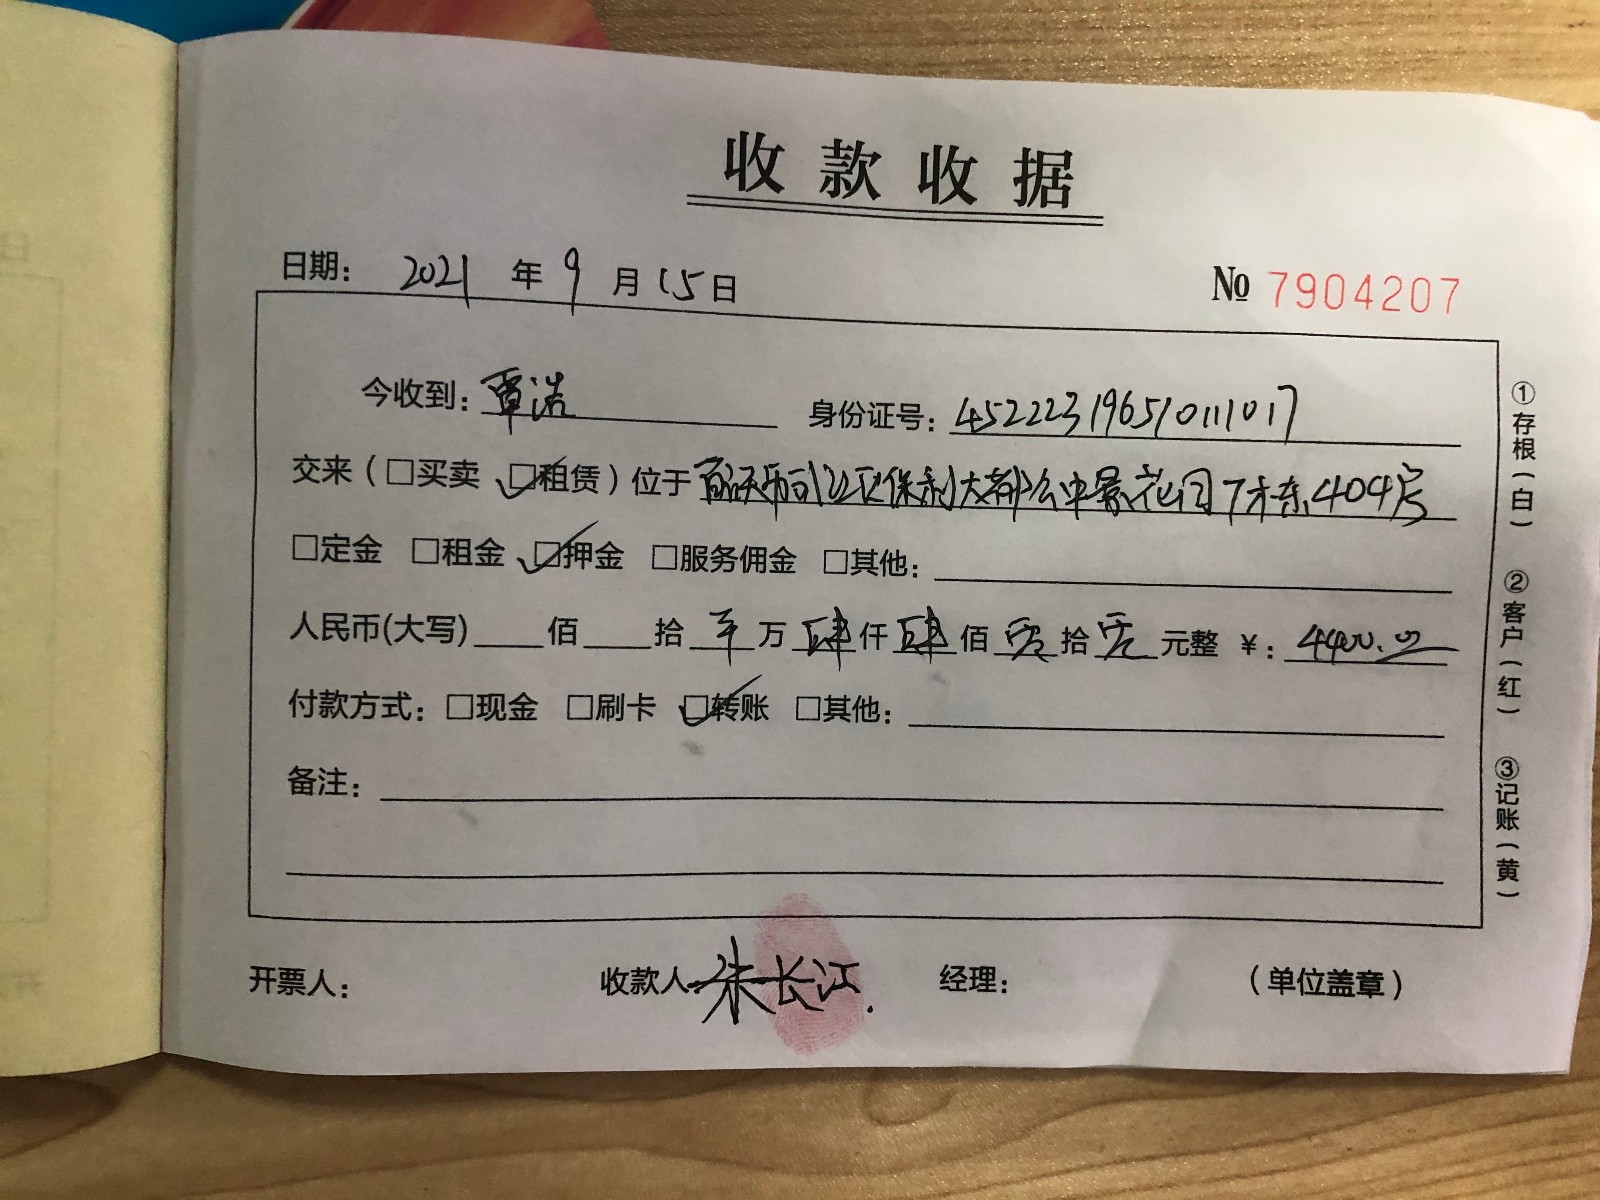 收款收据
日期： 2021 年 9 月 15 日 № 7904207
今收到：覃浩 身份证号：452223196510111017
交来（□买卖 ☑租赁）位于 区保利大都会中景花园7栋404房
□定金 □租金 ☑押金 □服务佣金 □其他：
人民币(大写) 佰 拾 万 肆 仟 肆 佰 零 拾 零 元整 ¥： 4400.00
付款方式：□现金 □刷卡 ☑转账 □其他：
备注：
开票人： 收款人 朱长江. 经理： （单位盖章）
①存根（白） ②客户（红） ③记账（黄）